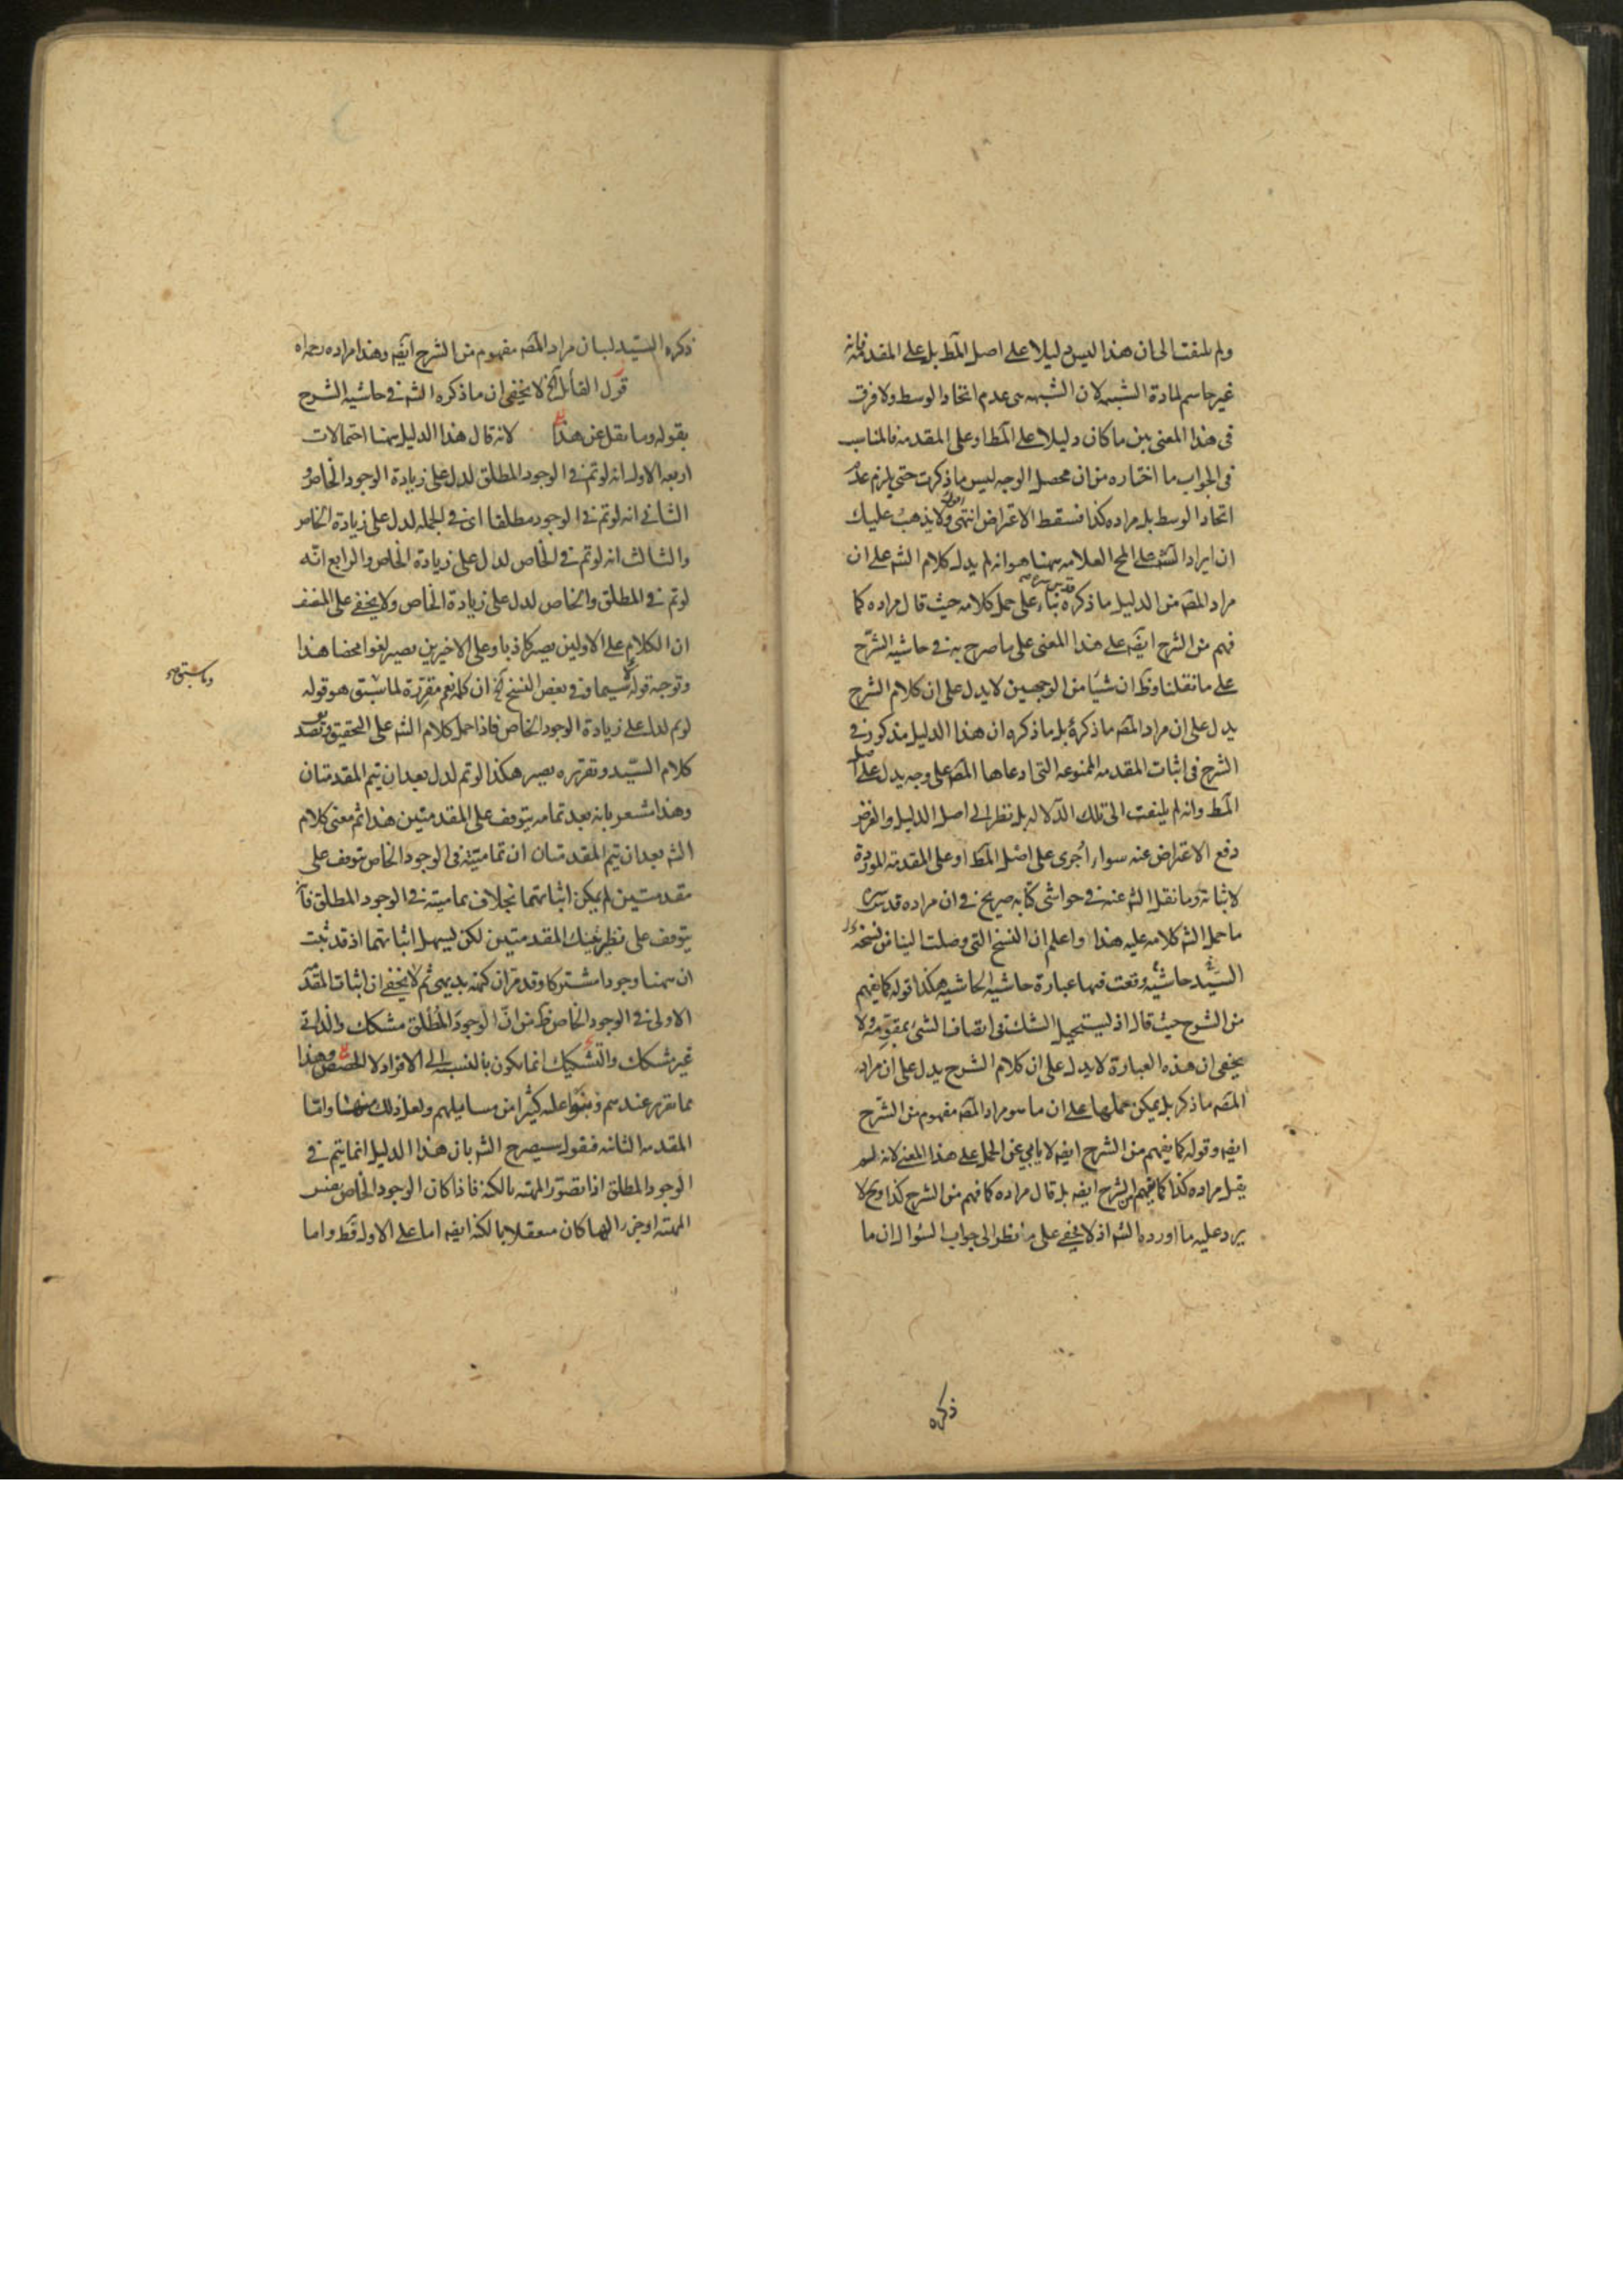 ولم يلتفت الى ان هذا ليس دليلا على اصل المط بل على المقدمة فانه
غير حاسم لمادة الشبهه لان الشبهه هى عدم اتحاد الوسط ولا فرق
فى هذا المعنى بين ما كان دليلا على المط او على المقدمه فالمناسب
فى الجواب ما اختاره من ان محصل الوجه ليس ما ذكرت حتى يلزم عدم
اتحاد الوسط بل مراده كذا فسقط الاعتراض انتهى ولا يذهب عليك
ان ايراد الش على المح العلامه ههنا هو انه لم يدل كلام الش على ان
مراد المصه من الدليل ما ذكره قدس سره بناء على حمل كلامه حيث قال مراده كما
فهم من الشرح ايضه على هذا المعنى على ما صرح به فى حاشيه الشرح
على ما نقلنا وظ ان شيئا من الوجهين لا يدل على ان كلام الشرح
يدل على ان مراد المصه ما ذكره بل ما ذكره ان هذا الدليل مذكور فى
الشرح فى اثبات المقدمه الممنوعه التى ادعاها المصه على وجه يدل على اصل
المط وانه لم يلتفت الى تلك الدلاله بل نظر الى اصل الدليل والغرض
دفع الاعتراض عنه سواء اجرى على اصل المط او على المقدمة الموردة
لاثباته وما نقل الش عنه فى حواشى كتابه صريح فى ان مراده قدس سره
ما حمل الش كلامه عليه هذا واعلم ان النسخ التى وصلت الينا من نسخه
السيد حاشية وقعت فيها عبارة حاشيه الحاشيه هكذا قوله كما يفهم
من الشرح حيث قال اذ ليستحيل الشك فى اتصاف الشئ بمقومه ولا
يخفى ان هذه العبارة لا يدل على ان كلام الشرح يدل على ان مراد
المصه ما ذكر بل يمكن حملها على ان ما هو مراد المصه مفهوم من الشرح
ايضه وقوله كما يفهم من الشرح ايضه لا يابى عن الحمل على هذا المعنى لانه لم
يقل مراده كذا كما يفهم من الشرح ايضه بل قال مراده كما فهم من الشرح كذا وح لا
يرد عليه ما اورده الش اذ لا يخفى على من نظر الى جواب السؤال ان ما
ذكره
ذكره السيد لبيان مراد المصه مفهوم من الشرح ايضه وهذا مراده رحمه اه
قول القائل الخ لا يخفى ان ما ذكره الش فى حاشيه الشرح
بقوله وما نقل عن هذا لانه قال هذا الدليل ههنا احتمالات
اربعه الاول انه لو تم فى الوجود المطلق لدل على زيادة الوجود الخاص و
الثانى انه لو تم فى الوجود مطلقا اى فى الجمله لدل على زيادة الخاص
والثالث انه لو تم فى الخاص لدل على زيادة الخاص والرابع انه
لو تم فى المطلق والخاص لدل على زيادة الخاص ولا يخفى على المنصف
ان الكلام على الاولين يصير كاذبا وعلى الاخيرين يصير لغوا محضا هذا
وتوجه قوله لا سيما وفى بعض النسخ الخ ان كلمه نعم مقررة لما سبق هو قوله
وما سبق هو
لو تم لدل على زيادة الوجود الخاص فاذا حمل كلام الش على التحقيق وتصديق
كلام السيد وتقريره يصير هكذا لو تم لدل بعد ان يتم المقدمتان
وهذا مشعر بانه بعد تمامه يتوقف على المقدمتين هذا ثم معنى كلام
الش بعد ان يتم المقدمتان ان تماميته فى الوجود الخاص يتوقف على
مقدمتين لم يمكن اثباتهما بخلاف تماميته فى الوجود المطلق فانه
يتوقف على نظير تينك المقدمتين لكن ليسهل اثباتهما اذ قد ثبت
ان ههنا وجودا مشتركا وقد مر ان كنهه بديهى ثم لا يخفى ان اثبات المقدمه
الاولى فى الوجود الخاص ظ من ان الوجود المطلق مشكك والذاتى
غير مشكك والتشكيك انما يكون بالنسبه الى الافراد لا الحصص وهذا
مما تقرر عندهم وبنوا عليه كثيرا من مسايلهم ولعل ذلك واما
المقدمه الثانيه فنقول سيصرح الش بان هذا الدليل انما يتم فى
الوجود المطلق اذا تصور المهيه بالكنه فاذا كان الوجود الخاص نفس
المهيه او جزءا لها كان متعقلا بالكنه ايضه اما على الاول فظ واما